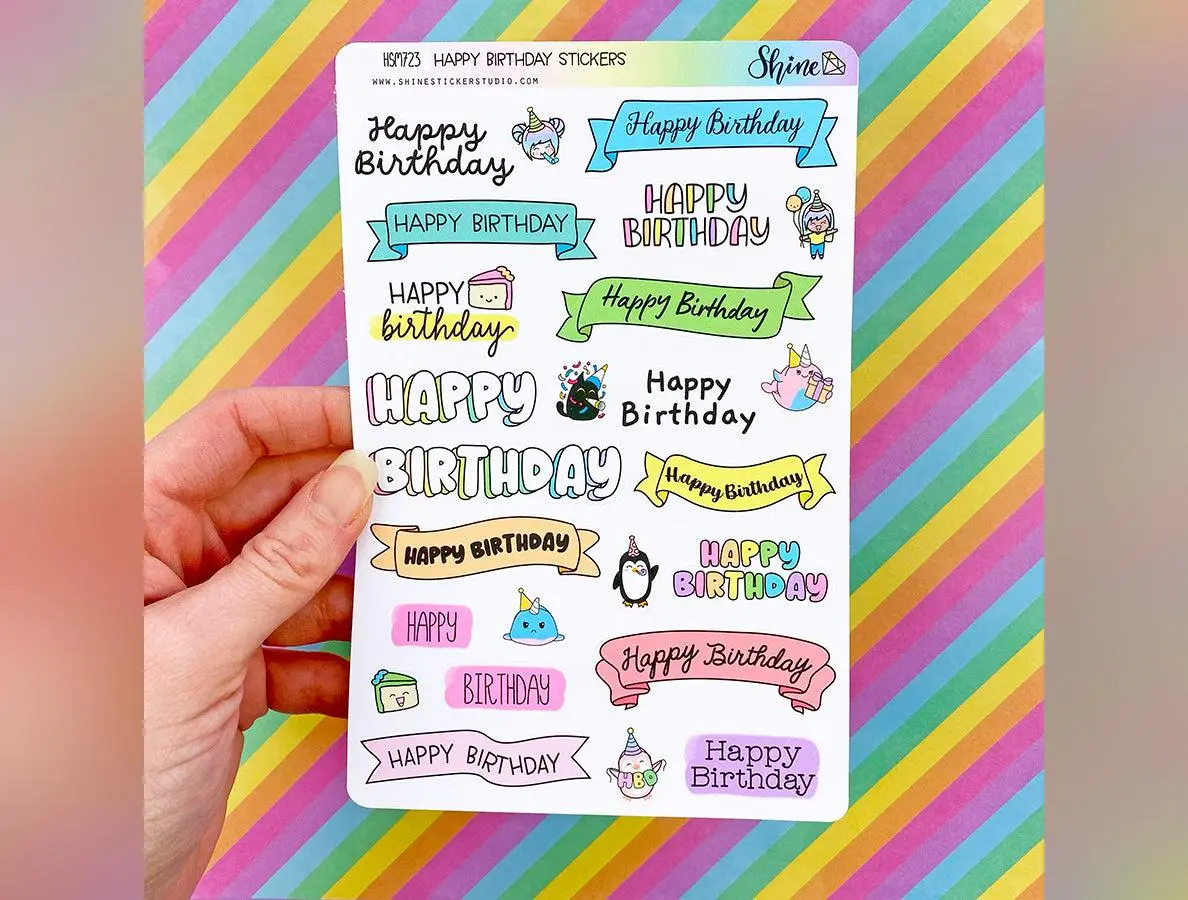 HSM723 HAPPY BIRTHDAY STICKERS
Shine
WWW.SHINESTICKERSTUDIO.COM
Happy
Birthday
Happy Birthday
HAPPY BIRTHDAY
HAPPY
BIRTHDAY
HAPPY
birthday
Happy Birthday
HAPPY
BIRTHDAY
Happy
Birthday
Happy Birthday
HAPPY BIRTHDAY
HAPPY
BIRTHDAY
HAPPY
BIRTHDAY
Happy Birthday
HAPPY BIRTHDAY
HBD
Happy
Birthday